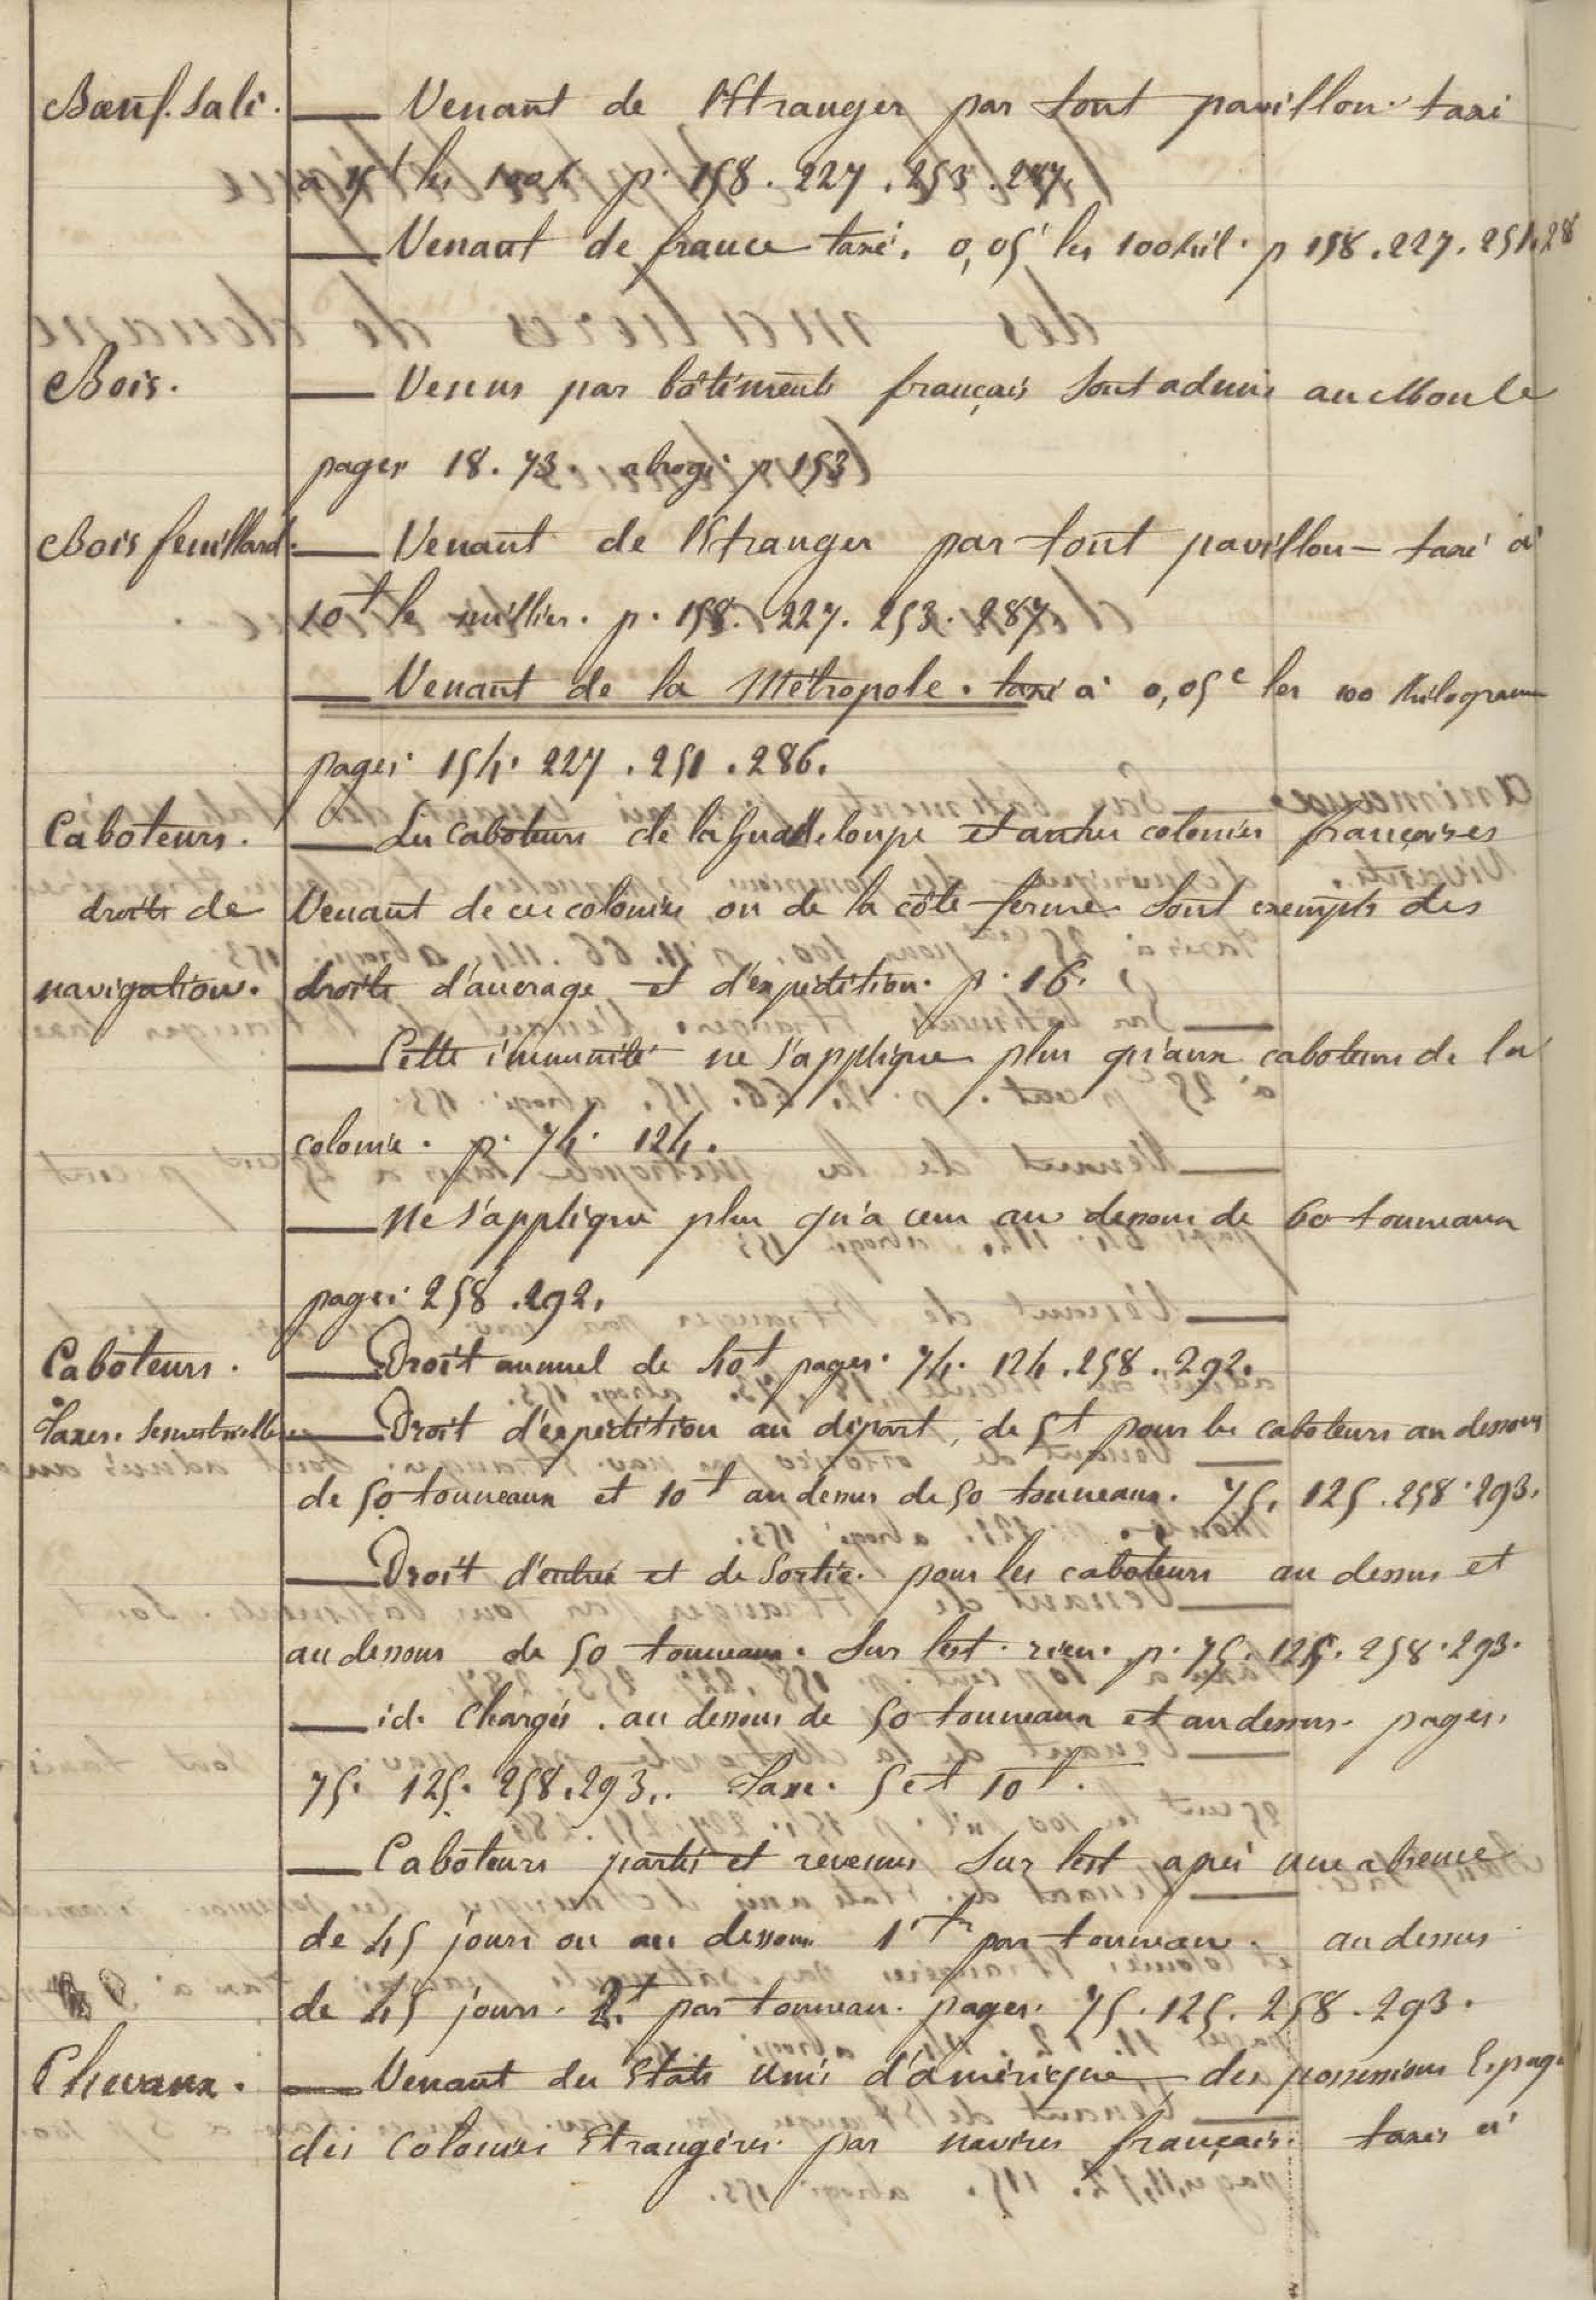 Bœuf. Salé. — Venant de l'Etranger par tout pavillon. taxé
à 15f les 100 k p. 158. 227. 253. 287.
— Venant de france taxé. 0,05c les 100 kil. p 158. 227. 251. 28
Bois. — Venus par bâtiments français sont admis au Moule
pages 18. 73. abrogé p 153
Bois feuillard. — Venant de l'Etranger par tout pavillon — taxé à
10f le millier. p. 158. 227. 253. 287.
— Venant de la Métropole. taxé à 0,05c les 100 Kilogramm
pages 154. 227. 251. 286.
Caboteurs. — Les Caboteurs de la Guadeloupe et autres colonies françaises
droits de Venant de ces colonies ou de la côte ferme sont exempts des
navigation. droits d'ancrage et d'expédition. p. 16.
— Cette immunité ne s'applique plus qu'aux caboteurs de la
colonie. p. 74. 124.
— Ne s'applique plus qu'à ceux au dessous de 60 tonneaux
pages 258. 292.
Caboteurs. — Droit annuel de 40f pages. 74. 124. 258. 292.
Taxes. Semestrielles — Droit d'expédition au départ, de 5f pour les caboteurs au dessous
de 50 tonneaux et 10f au dessus de 50 tonneaux. 75. 125. 258. 293.
— Droit d'entrée et de Sortie. pour les caboteurs au dessus et
au dessous de 50 tonneaux. Sur lest. rien. p. 75. 125. 258. 293.
— id. Chargés. au dessous de 50 tonneaux et au dessus. pages.
75. 125. 258. 293.. Taxe. 5 et 10f.
— Caboteurs partis et revenus Sur lest après une absence
de 45 jours ou au dessous 1f par tonneau. au dessus
de 45 jours. 2f par tonneau. pages. 75. 125. 258. 293.
Chevaux. — Venant des Etats Unis d'amérique, des possessions Espag.
des Colonies Etrangères. par navires français. taxés à